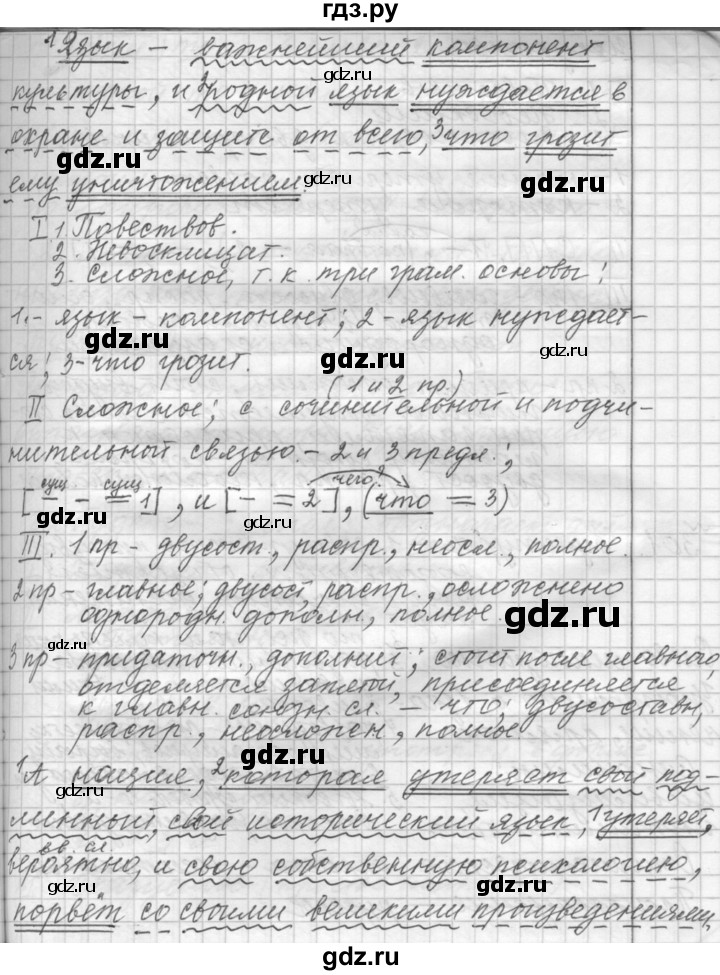 гдз.ру
1Язык – важнейший компонент
культуры, и 2родной язык нуждается в
охране и защите от всего, 3что грозит
ему уничтожением.
gdz.ru gdz.ru gdz.ru
I 1. Повествов.
2. Невосклицат.
gdz.ru
3. Сложное, т.к. три грам. основы:
1.- язык – компонент; 2 - язык нуждает-
gdz.ru gdz.ru
ся; 3- что грозит.
gdz.ru
(1 и 2 пр.)
II Сложное; с сочинительной и подчи-
gdz.ru
нительной связью. – 2 и 3 предл.;
gdz.ru
сущ сущ чего?
[– – = 1], и [– = 2], (что = 3)
gdz.ru gdz.ru
III. 1 пр - двусост., распр., неосл., полное.
2 пр – главное; двусост, распр., осложнено
однородн. дополн., полное.
gdz.ru
3 пр – придаточн., дополнит; стоит после главного,
gdz.ru
отделяется запятой, присоединяется
к главн. союзн. сл. – что; двусоставн,
распр., неосложн, полное
gdz.ru
1А нация, 2которая утеряет свой под-
gdz.ru
линный, свой исторический язык, 1утеряет,
вв. сл.
вероятно, и свою собственную психологию,
gdz.ru gdz.ru
порвёт со своими великими произведениями,
gdz.ru